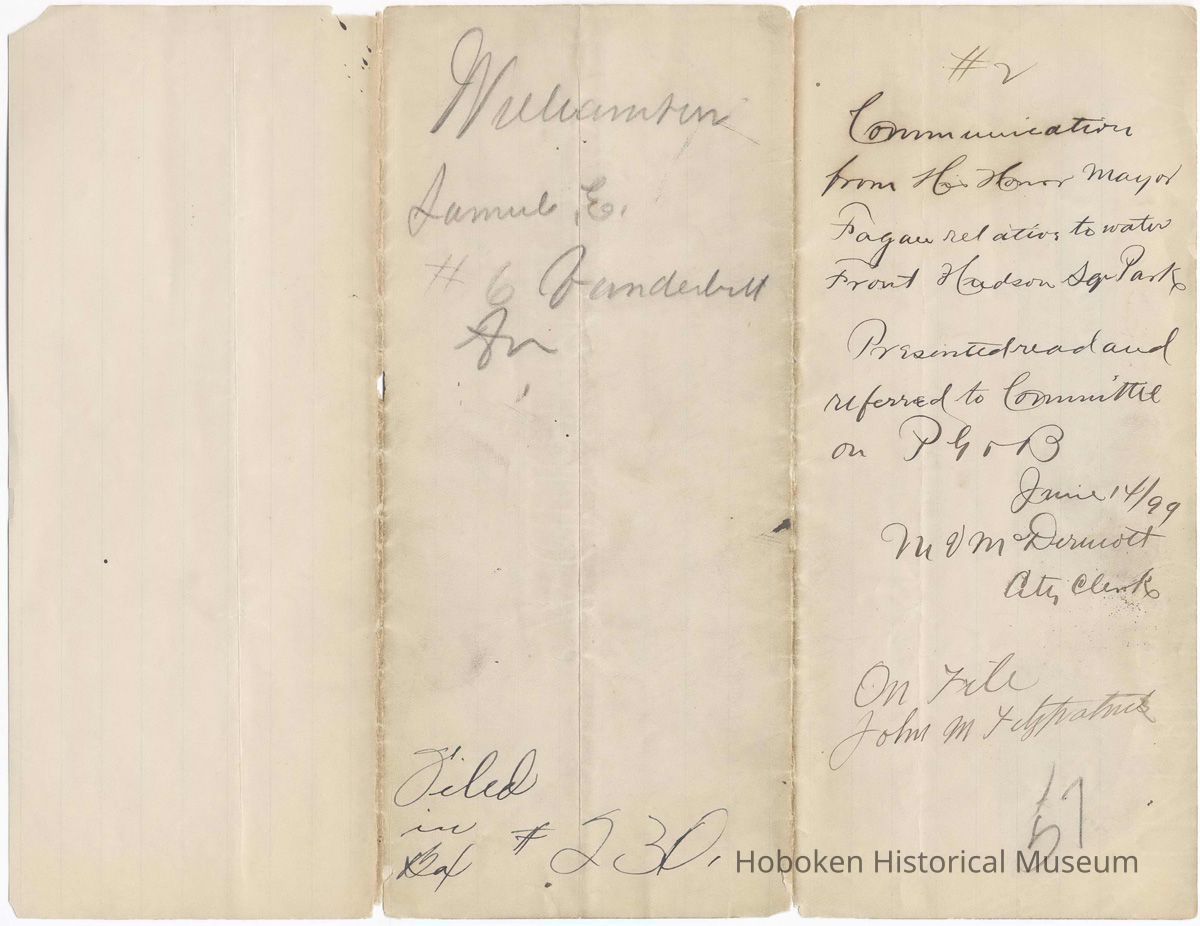 Williamson
Samuel E.
# 6 Vanderbilt
Filed
in
Box # 230.
# 2
Communication
from His Honor Mayor
Fagan relative to water
Front Hudson Sqr Park
Presented read and
referred to Committee
on P G & B
June 14/99
M V McDermott
City Clerk
On File
John M Fitzpatrick
Hoboken Historical Museum